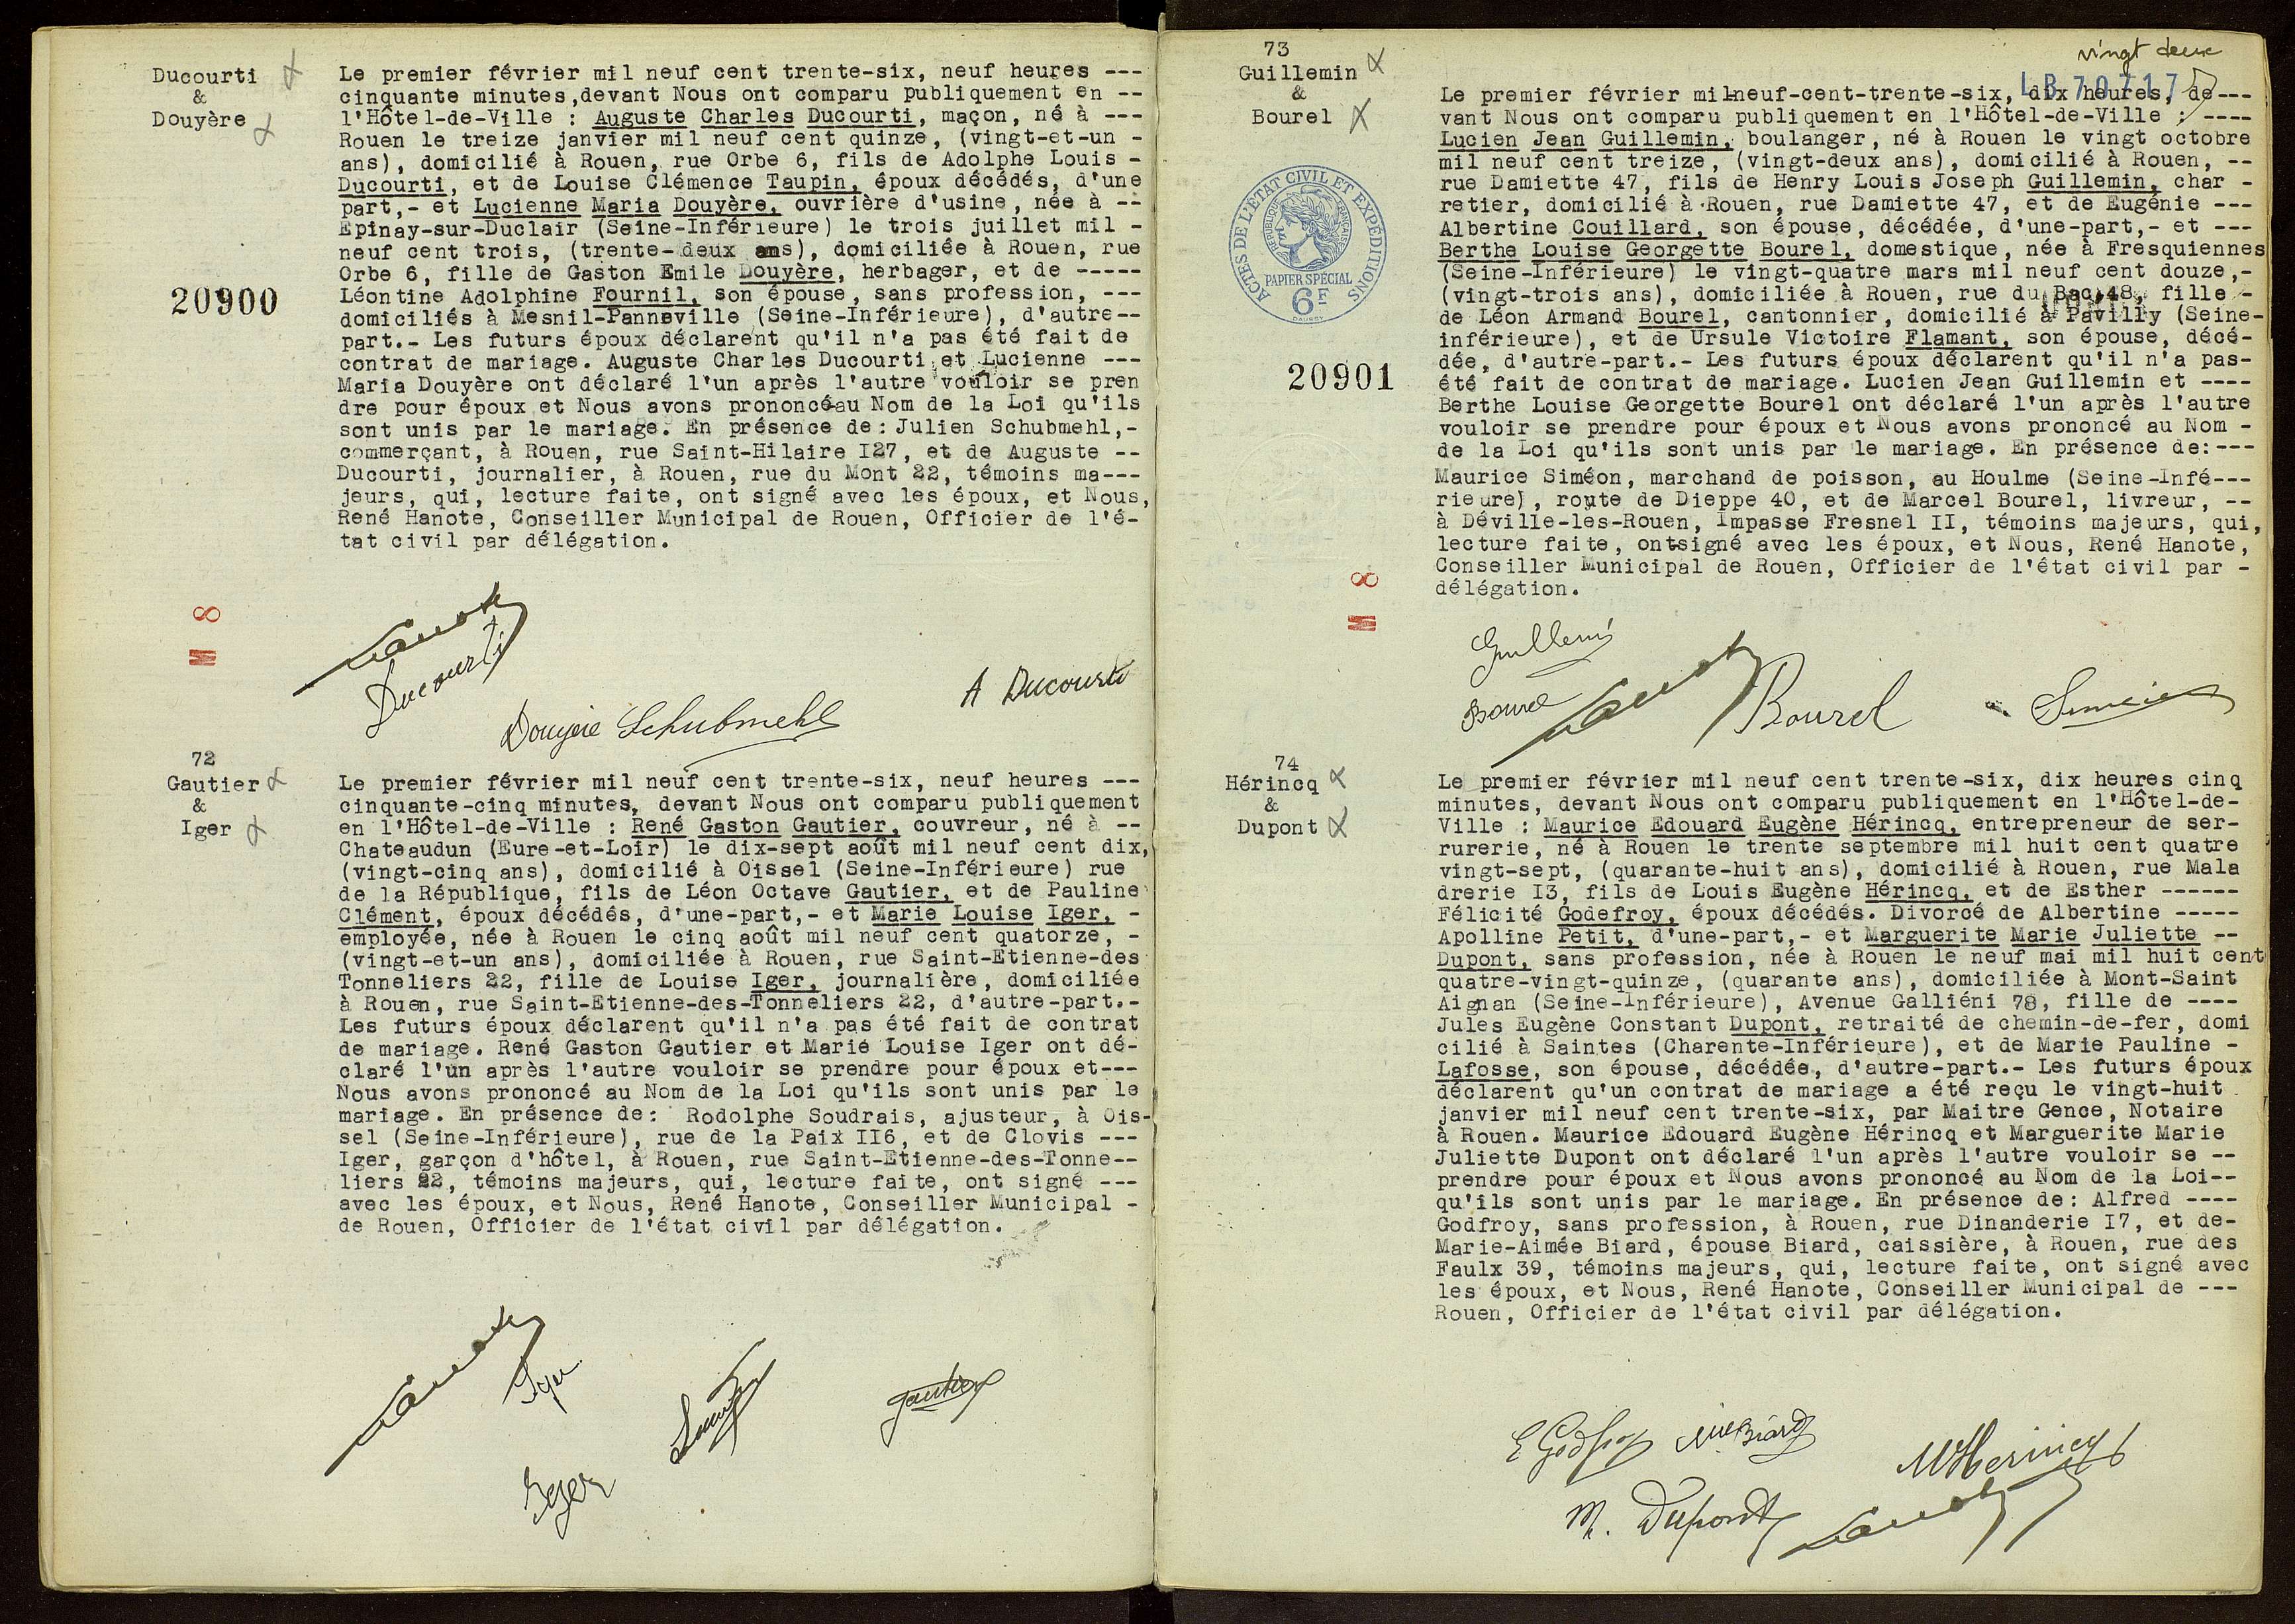 Ducourti
&
Douyère
20900
M 8
Le premier février mil neuf cent trente-six, neuf heures ---
cinquante minutes,devant Nous ont comparu publiquement en --
l'Hôtel-de-Ville : Auguste Charles Ducourti, maçon, né à ---
Rouen le treize janvier mil neuf cent quinze, (vingt-et-un -
ans), domicilié à Rouen, rue Orbe 6, fils de Adolphe Louis -
Ducourti, et de Louise Clémence Taupin, époux décédés, d'une
part,- et Lucienne Maria Douyère, ouvrière d'usine, née à --
Epinay-sur-Duclair (Seine-Inférieure) le trois juillet mil -
neuf cent trois, (trente-deux ans), domiciliée à Rouen, rue
Orbe 6, fille de Gaston Emile Douyère, herbager, et de -----
Léontine Adolphine Fournil, son épouse, sans profession, ---
domiciliés à Mesnil-Panneville (Seine-Inférieure), d'autre--
part.- Les futurs époux déclarent qu'il n'a pas été fait de
contrat de mariage. Auguste Charles Ducourti et Lucienne ---
Maria Douyère ont déclaré l'un après l'autre vouloir se pren
dre pour époux et Nous avons prononcé-au Nom de la Loi qu'ils
sont unis par le mariage. En présence de: Julien Schubmehl,-
commerçant, à Rouen, rue Saint-Hilaire I27, et de Auguste --
Ducourti, journalier, à Rouen, rue du Mont 22, témoins ma---
jeurs, qui, lecture faite, ont signé avec les époux, et Nous,
René Hanote, Conseiller Municipal de Rouen, Officier de l'é-
tat civil par délégation.
Hanote
Ducourti
Douyère Schubmehl
A Ducourti
72
Gautier
&
Iger
Le premier février mil neuf cent trente-six, neuf heures ---
cinquante-cinq minutes, devant Nous ont comparu publiquement
en l'Hôtel-de-Ville : René Gaston Gautier, couvreur, né à --
Chateaudun (Eure-et-Loir) le dix-sept août mil neuf cent dix,
(vingt-cinq ans), domicilié à Oissel (Seine-Inférieure) rue
de la République, fils de Léon Octave Gautier, et de Pauline
Clément, époux décédés, d'une-part,- et Marie Louise Iger, -
employée, née à Rouen le cinq août mil neuf cent quatorze, -
(vingt-et-un ans), domiciliée à Rouen, rue Saint-Etienne-des
Tonneliers 22, fille de Louise Iger, journalière, domiciliée
à Rouen, rue Saint-Etienne-des-Tonneliers 22, d'autre-part.-
Les futurs époux déclarent qu'il n'a pas été fait de contrat
de mariage. René Gaston Gautier et Marie Louise Iger ont dé-
claré l'un après l'autre vouloir se prendre pour époux et---
Nous avons prononcé au Nom de la Loi qu'ils sont unis par le
mariage. En présence de: Rodolphe Soudrais, ajusteur, à Ois-
sel (Seine-Inférieure), rue de la Paix II6, et de Clovis ---
Iger, garçon d'hôtel, à Rouen, rue Saint-Etienne-des-Tonne--
liers 22, témoins majeurs, qui, lecture faite, ont signé ---
avec les époux, et Nous, René Hanote, Conseiller Municipal -
de Rouen, Officier de l'état civil par délégation.
Hanote
Iger
Gautier
Iger
vingt deux
LB 70717
73
Guillemin
&
Bourel
ACTES DE L'ETAT CIVIL ET EXPEDITIONS
REPUBLIQUE FRANÇAISE
PAPIER SPÉCIAL
6F
DAUSSY
20901
M 8
Le premier février mil-neuf-cent-trente-six, dix heures, de---
vant Nous ont comparu publiquement en l'Hôtel-de-Ville : ----
Lucien Jean Guillemin, boulanger, né à Rouen le vingt octobre
mil neuf cent treize, (vingt-deux ans), domicilié à Rouen, --
rue Damiette 47, fils de Henry Louis Joseph Guillemin, char -
retier, domicilié à Rouen, rue Damiette 47, et de Eugénie ---
Albertine Couillard, son épouse, décédée, d'une-part,- et ---
Berthe Louise Georgette Bourel, domestique, née à Fresquiennes
(Seine-Inférieure) le vingt-quatre mars mil neuf cent douze,-
(vingt-trois ans), domiciliée à Rouen, rue du Bac,48, fille -
de Léon Armand Bourel, cantonnier, domicilié à Pavilly (Seine-
inférieure), et de Ursule Victoire Flamant, son épouse, décé-
dée, d'autre-part.- Les futurs époux déclarent qu'il n'a pas-
été fait de contrat de mariage. Lucien Jean Guillemin et ----
Berthe Louise Georgette Bourel ont déclaré l'un après l'autre
vouloir se prendre pour époux et Nous avons prononcé au Nom -
de la Loi qu'ils sont unis par le mariage. En présence de:---
Maurice Siméon, marchand de poisson, au Houlme (Seine-Infé---
rieure), route de Dieppe 40, et de Marcel Bourel, livreur, --
à Déville-les-Rouen, Impasse Fresnel II, témoins majeurs, qui,
lecture faite, ont-signé avec les époux, et Nous, René Hanote,
Conseiller Municipal de Rouen, Officier de l'état civil par -
délégation.
Guillemin
Bourel
Hanote
Bourel
Siméon
74
Hérincq
&
Dupont
Le premier février mil neuf cent trente-six, dix heures cinq
minutes, devant Nous ont comparu publiquement en l'Hôtel-de-
Ville : Maurice Edouard Eugène Hérincq, entrepreneur de ser-
rurerie, né à Rouen le trente septembre mil huit cent quatre
vingt-sept, (quarante-huit ans), domicilié à Rouen, rue Mala
drerie I3, fils de Louis Eugène Hérincq, et de Esther ------
Félicité Godefroy, époux décédés. Divorcé de Albertine -----
Apolline Petit, d'une-part,- et Marguerite Marie Juliette --
Dupont, sans profession, née à Rouen le neuf mai mil huit cent
quatre-vingt-quinze, (quarante ans), domiciliée à Mont-Saint
Aignan (Seine-Inférieure), Avenue Galliéni 78, fille de ----
Jules Eugène Constant Dupont, retraité de chemin-de-fer, domi
cilié à Saintes (Charente-Inférieure), et de Marie Pauline -
Lafosse, son épouse, décédée, d'autre-part.- Les futurs époux
déclarent qu'un contrat de mariage a été reçu le vingt-huit
janvier mil neuf cent trente-six, par Maitre Gence, Notaire
à Rouen. Maurice Edouard Eugène Hérincq et Marguerite Marie
Juliette Dupont ont déclaré l'un après l'autre vouloir se --
prendre pour époux et Nous avons prononcé au Nom de la Loi--
qu'ils sont unis par le mariage. En présence de: Alfred ----
Godfroy, sans profession, à Rouen, rue Dinanderie I7, et de-
Marie-Aimée Biard, épouse Biard, caissière, à Rouen, rue des
Faulx 39, témoins majeurs, qui, lecture faite, ont signé avec
les époux, et Nous, René Hanote, Conseiller Municipal de ---
Rouen, Officier de l'état civil par délégation.
Godfroy
Biard
M Herincq
M. Dupont
Hanote